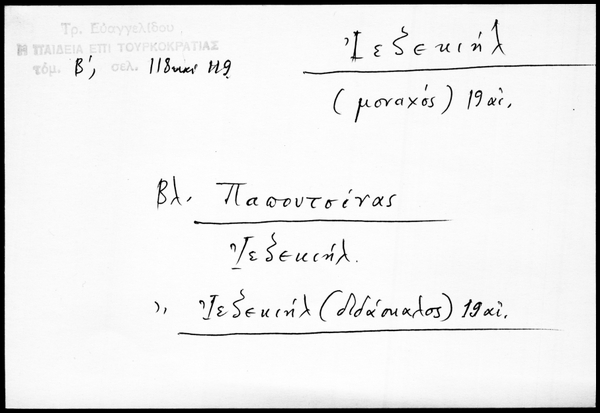 Τρ. Εὐαγγελίδου,
Η ΠΑΙΔΕΙΑ ΕΠΙ ΤΟΥΡΚΟΚΡΑΤΙΑΣ
τόμ. Β', σελ. 118 και 119
Ἰεζεκιήλ
(μοναχός) 19 αἰ.
Βλ. Παπουτσίνας
Ἰεζεκιήλ.
〃 Ἰεζεκιήλ (διδάσκαλος) 19 αἰ.